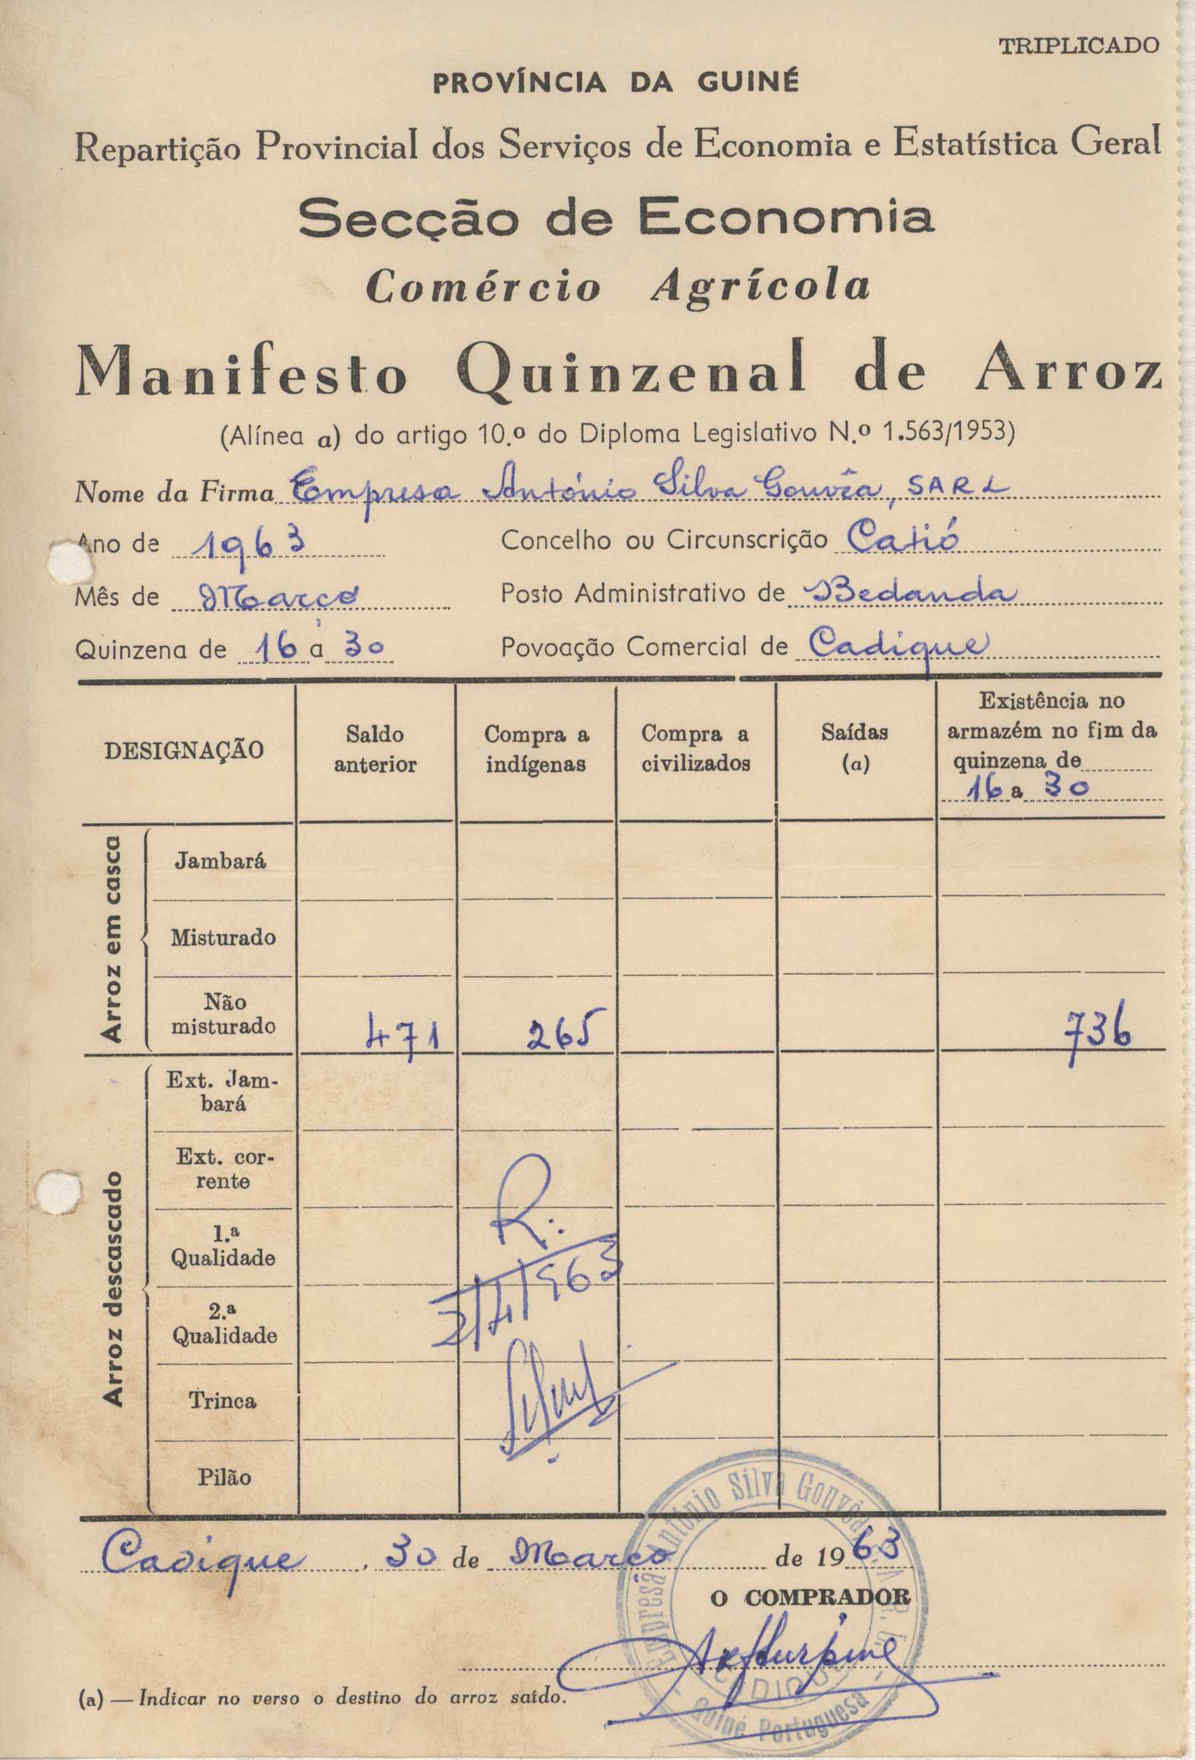 TRIPLICADO
PROVÍNCIA DA GUINÉ
Repartição Provincial dos Serviços de Economia e Estatística Geral
Secção de Economia
Comércio Agrícola
Manifesto Quinzenal de Arroz
(Alínea a) do artigo 10.º do Diploma Legislativo N.º 1.563/1953)
Nome da Firma Empresa António Silva Gouvêa, SARL
Ano de 1963 Concelho ou Circunscrição Catió
Mês de Março Posto Administrativo de Bedanda
Quinzena de 16 a 30 Povoação Comercial de Cadique
DESIGNAÇÃO
Saldo anterior
Compra a indígenas
Compra a civilizados
Saídas (a)
Existência no armazém no fim da quinzena de 16 a 30
Arroz em casca
Jambará
Misturado
Não misturado 471 265 736
Arroz descascado
Ext. Jambará
Ext. corrente
1.ª Qualidade
2.ª Qualidade
Trinca
Pilão
R:
3/4/963
Cadique, 30 de Março de 1963
O COMPRADOR
Empresa António Silva Gouvêa
Guiné Portuguesa
(a) — Indicar no verso o destino do arroz saído.